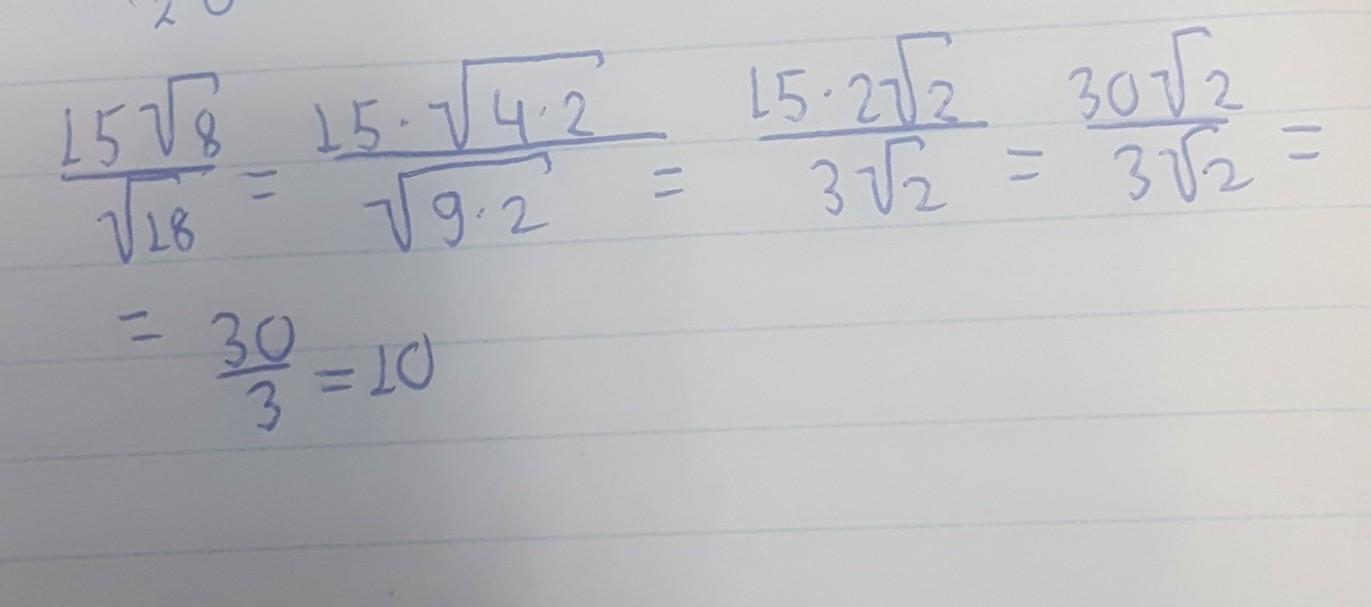 15√8/√18 = 15·√4·2/√9·2 = 15·2√2/3√2 = 30√2/3√2 =
= 30/3 = 10